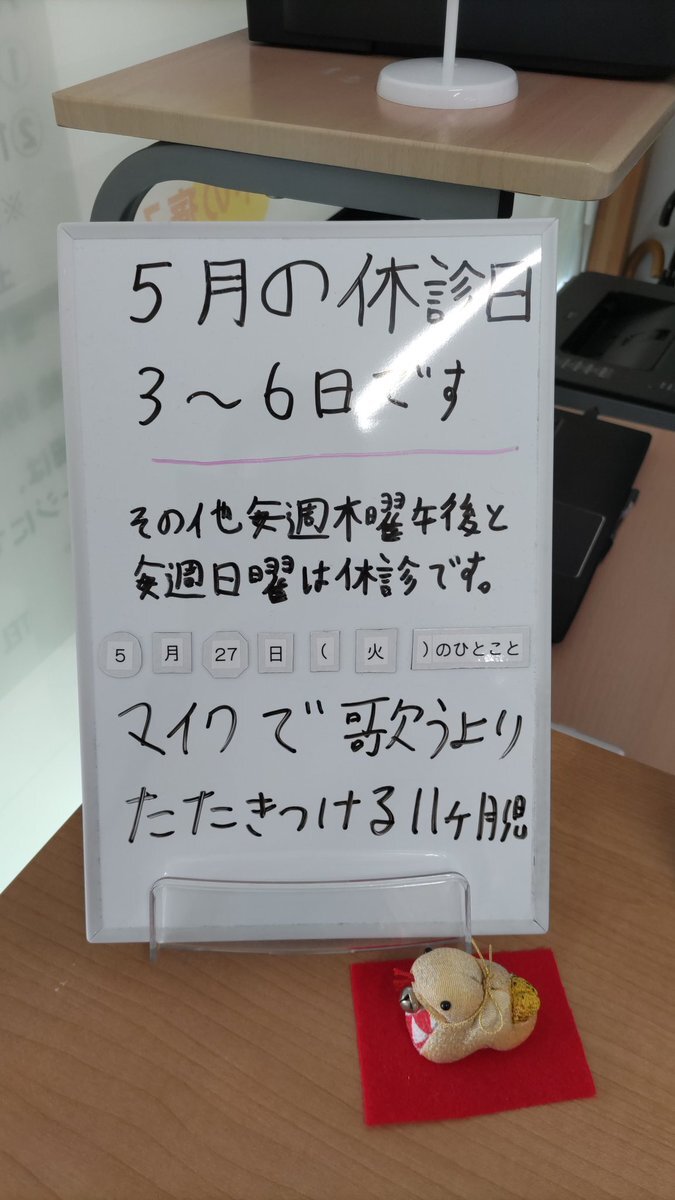 5月の休診日
3〜6日です
その他毎週木曜午後と
毎週日曜は休診です。
5月27日(火)のひとこと
マイクで歌うより
たたきつける11ヶ月児